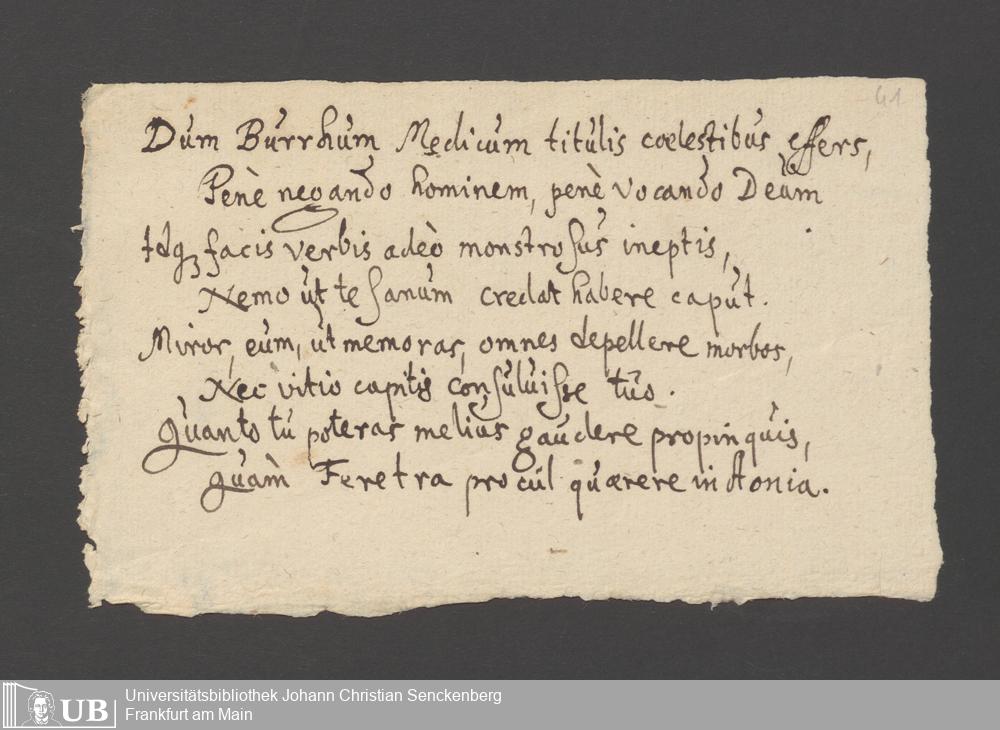 41
Dum Burrhum Medicum titulis coelestibus effers,
Penè negando hominem, penè vocando Deum
Idq; facis verbis adeò monstrosus ineptis,
Nemo ut te sanum credat habere caput.
Miror, eum, ut memoras, omnes depellere morbos,
Nec vitio capitis consuluisse tuo.
Quanto tu poteras melius gaudere propinquis,
quàm Feretra procul quaerere in Aonia.
UB
Universitätsbibliothek Johann Christian Senckenberg
Frankfurt am Main